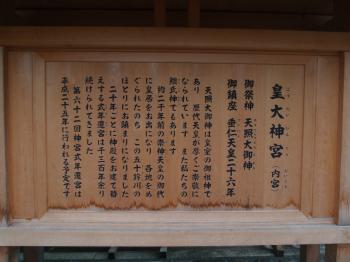 こうたいじんぐう
皇大神宮（内宮）
ないくう
御祭神　天照大御神
御鎮座　垂仁天皇二十六年
天照大御神は皇室の御祖神で
あり　歴代天皇が厚くご崇敬に
なられています　また私たちの
総氏神でもあります
約二千年前の崇神天皇の御代
に皇居をお出になり　各地をめ
ぐられたのち　この五十鈴川の
ほとりにお鎮まりになりました
二十年ごとに神殿をお建て替
えする式年遷宮は千三百年余り
続けられてきました
第六十二回神宮式年遷宮は
平成二十五年に行われる予定です